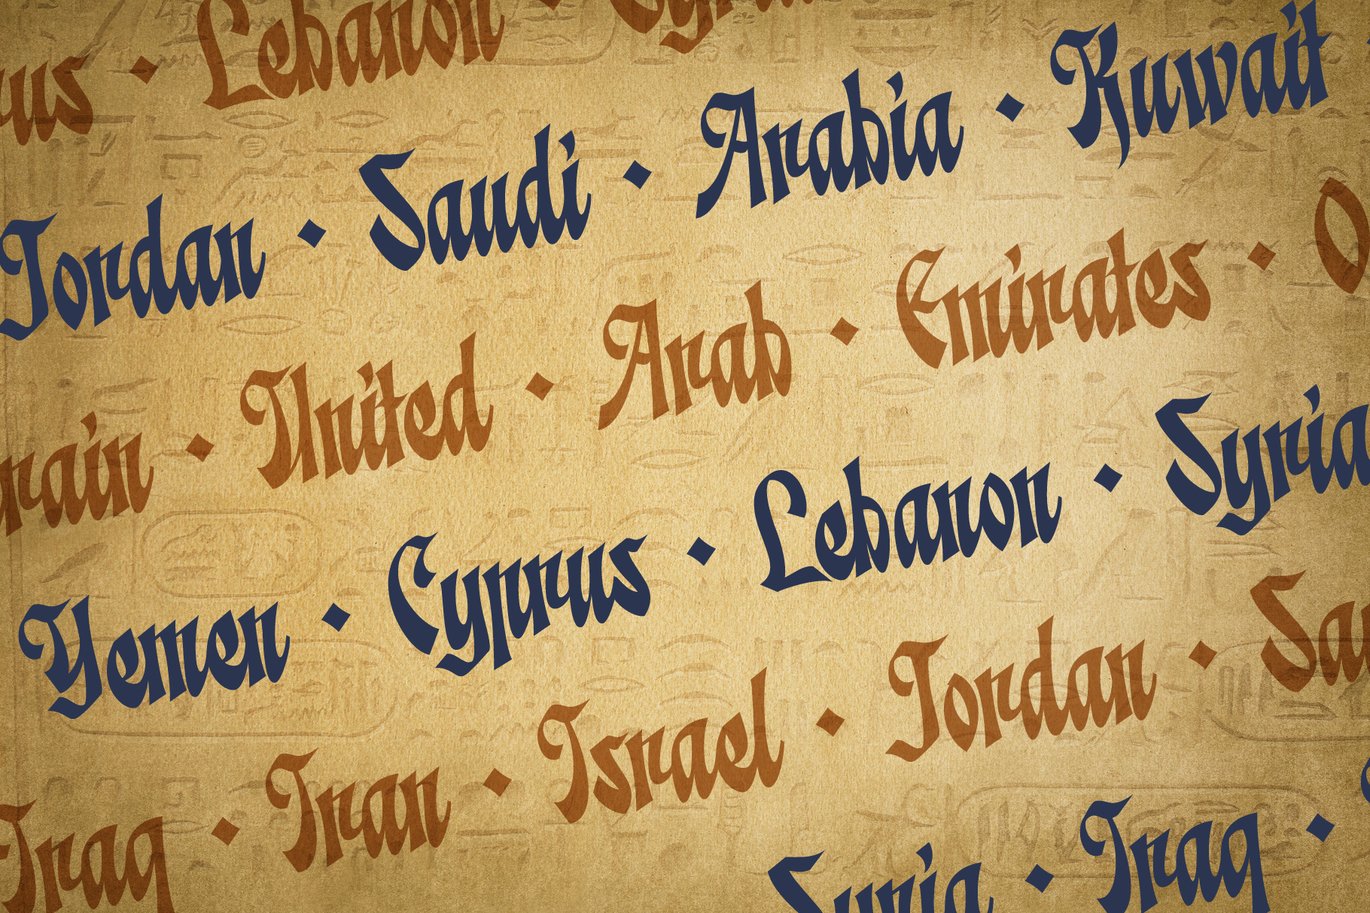 us · Lebanon · Syria
Jordan · Saudi · Arabia · Kuwait
rain · United · Arab · Emirates · O
Yemen · Cyprus · Lebanon · Syria
Iraq · Iran · Israel · Jordan · Sau
Syria · Iraq ·